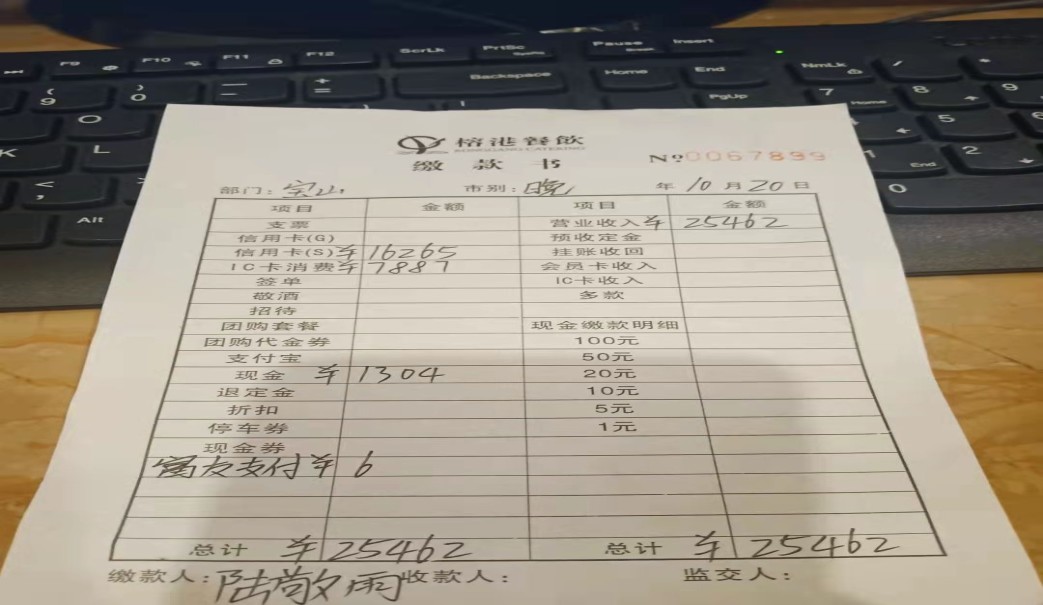 榕港餐飲
RONGGANG CATERING
缴款书
№0067899
部门：宝山 市别：晚 年10月20日
项目 金额 项目 金额
支票 营业收入 ¥25462
信用卡(G) 预收定金
信用卡(S) ¥16265 挂账收回
IC卡消费 ¥7887 会员卡收入
签单 IC卡收入
敬酒 多款
招待
团购套餐 现金缴款明细
团购代金券 100元
支付宝 50元
现金 ¥1304 20元
退定金 10元
折扣 5元
停车券 1元
现金券
支付 ¥6
总计 ¥25462 总计 ¥25462
缴款人：陆敬雨 收款人： 监交人：
F9 F10 F11 F12 ScrLk PrtSc Pause Insert
Backspace Home End NmLk
PgUp 7 Home 8 9
( 9 ) 0 — = +
O 4 5
K L 1 End 2
< , Alt 0